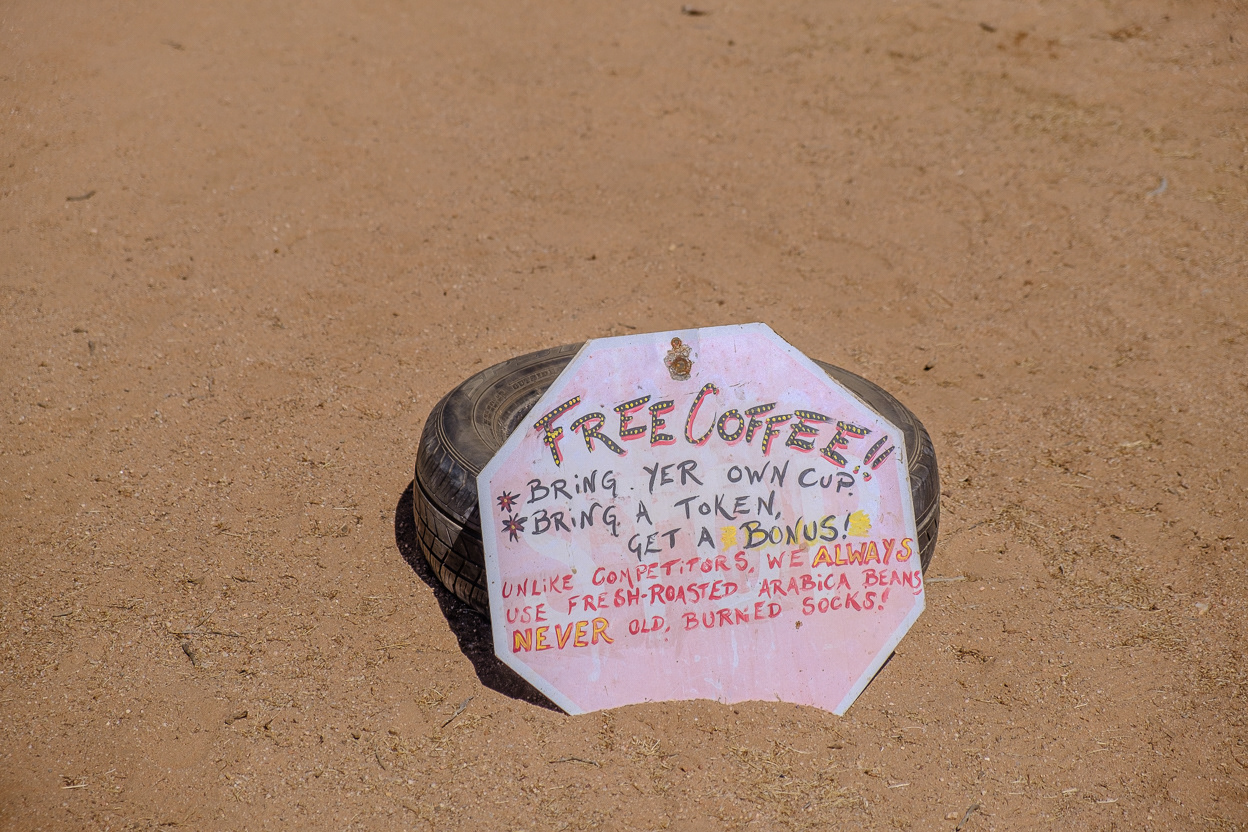 FREE COFFEE!!
* BRING YER OWN CUP.
* BRING A TOKEN,
GET A BONUS!
UNLIKE COMPETITORS, WE ALWAYS
USE FRESH-ROASTED ARABICA BEANS
NEVER OLD, BURNED SOCKS!